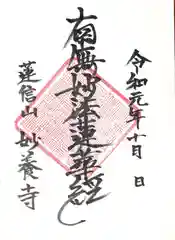 令和元年十月 日
南無妙法蓮華経
蓮信山 妙養寺